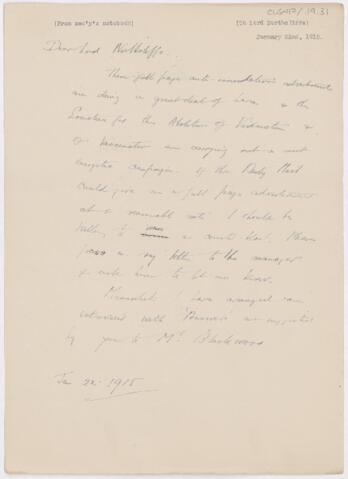 OWSWP/19.31
(From sec'y's notebook) (To Lord Northcliffe)
January 22nd, 1915.
Dear Lord Northcliffe,
These full page anti-inoculation advertisements
are doing a great deal of harm & the
Societies for the Abolition of Vivisection &
of Vaccination are carrying out a most
energetic campaign. If the Daily Mail
could give me a full page advertisement
at a reasonable rate I should be
willing to a counter blast. Please
pass on my letter to the manager
& ask him to let me know.
Meanwhile I have arranged an
interview with 'Pearson's' as suggested
by you to Mr Blackwood
Jan 22 1915